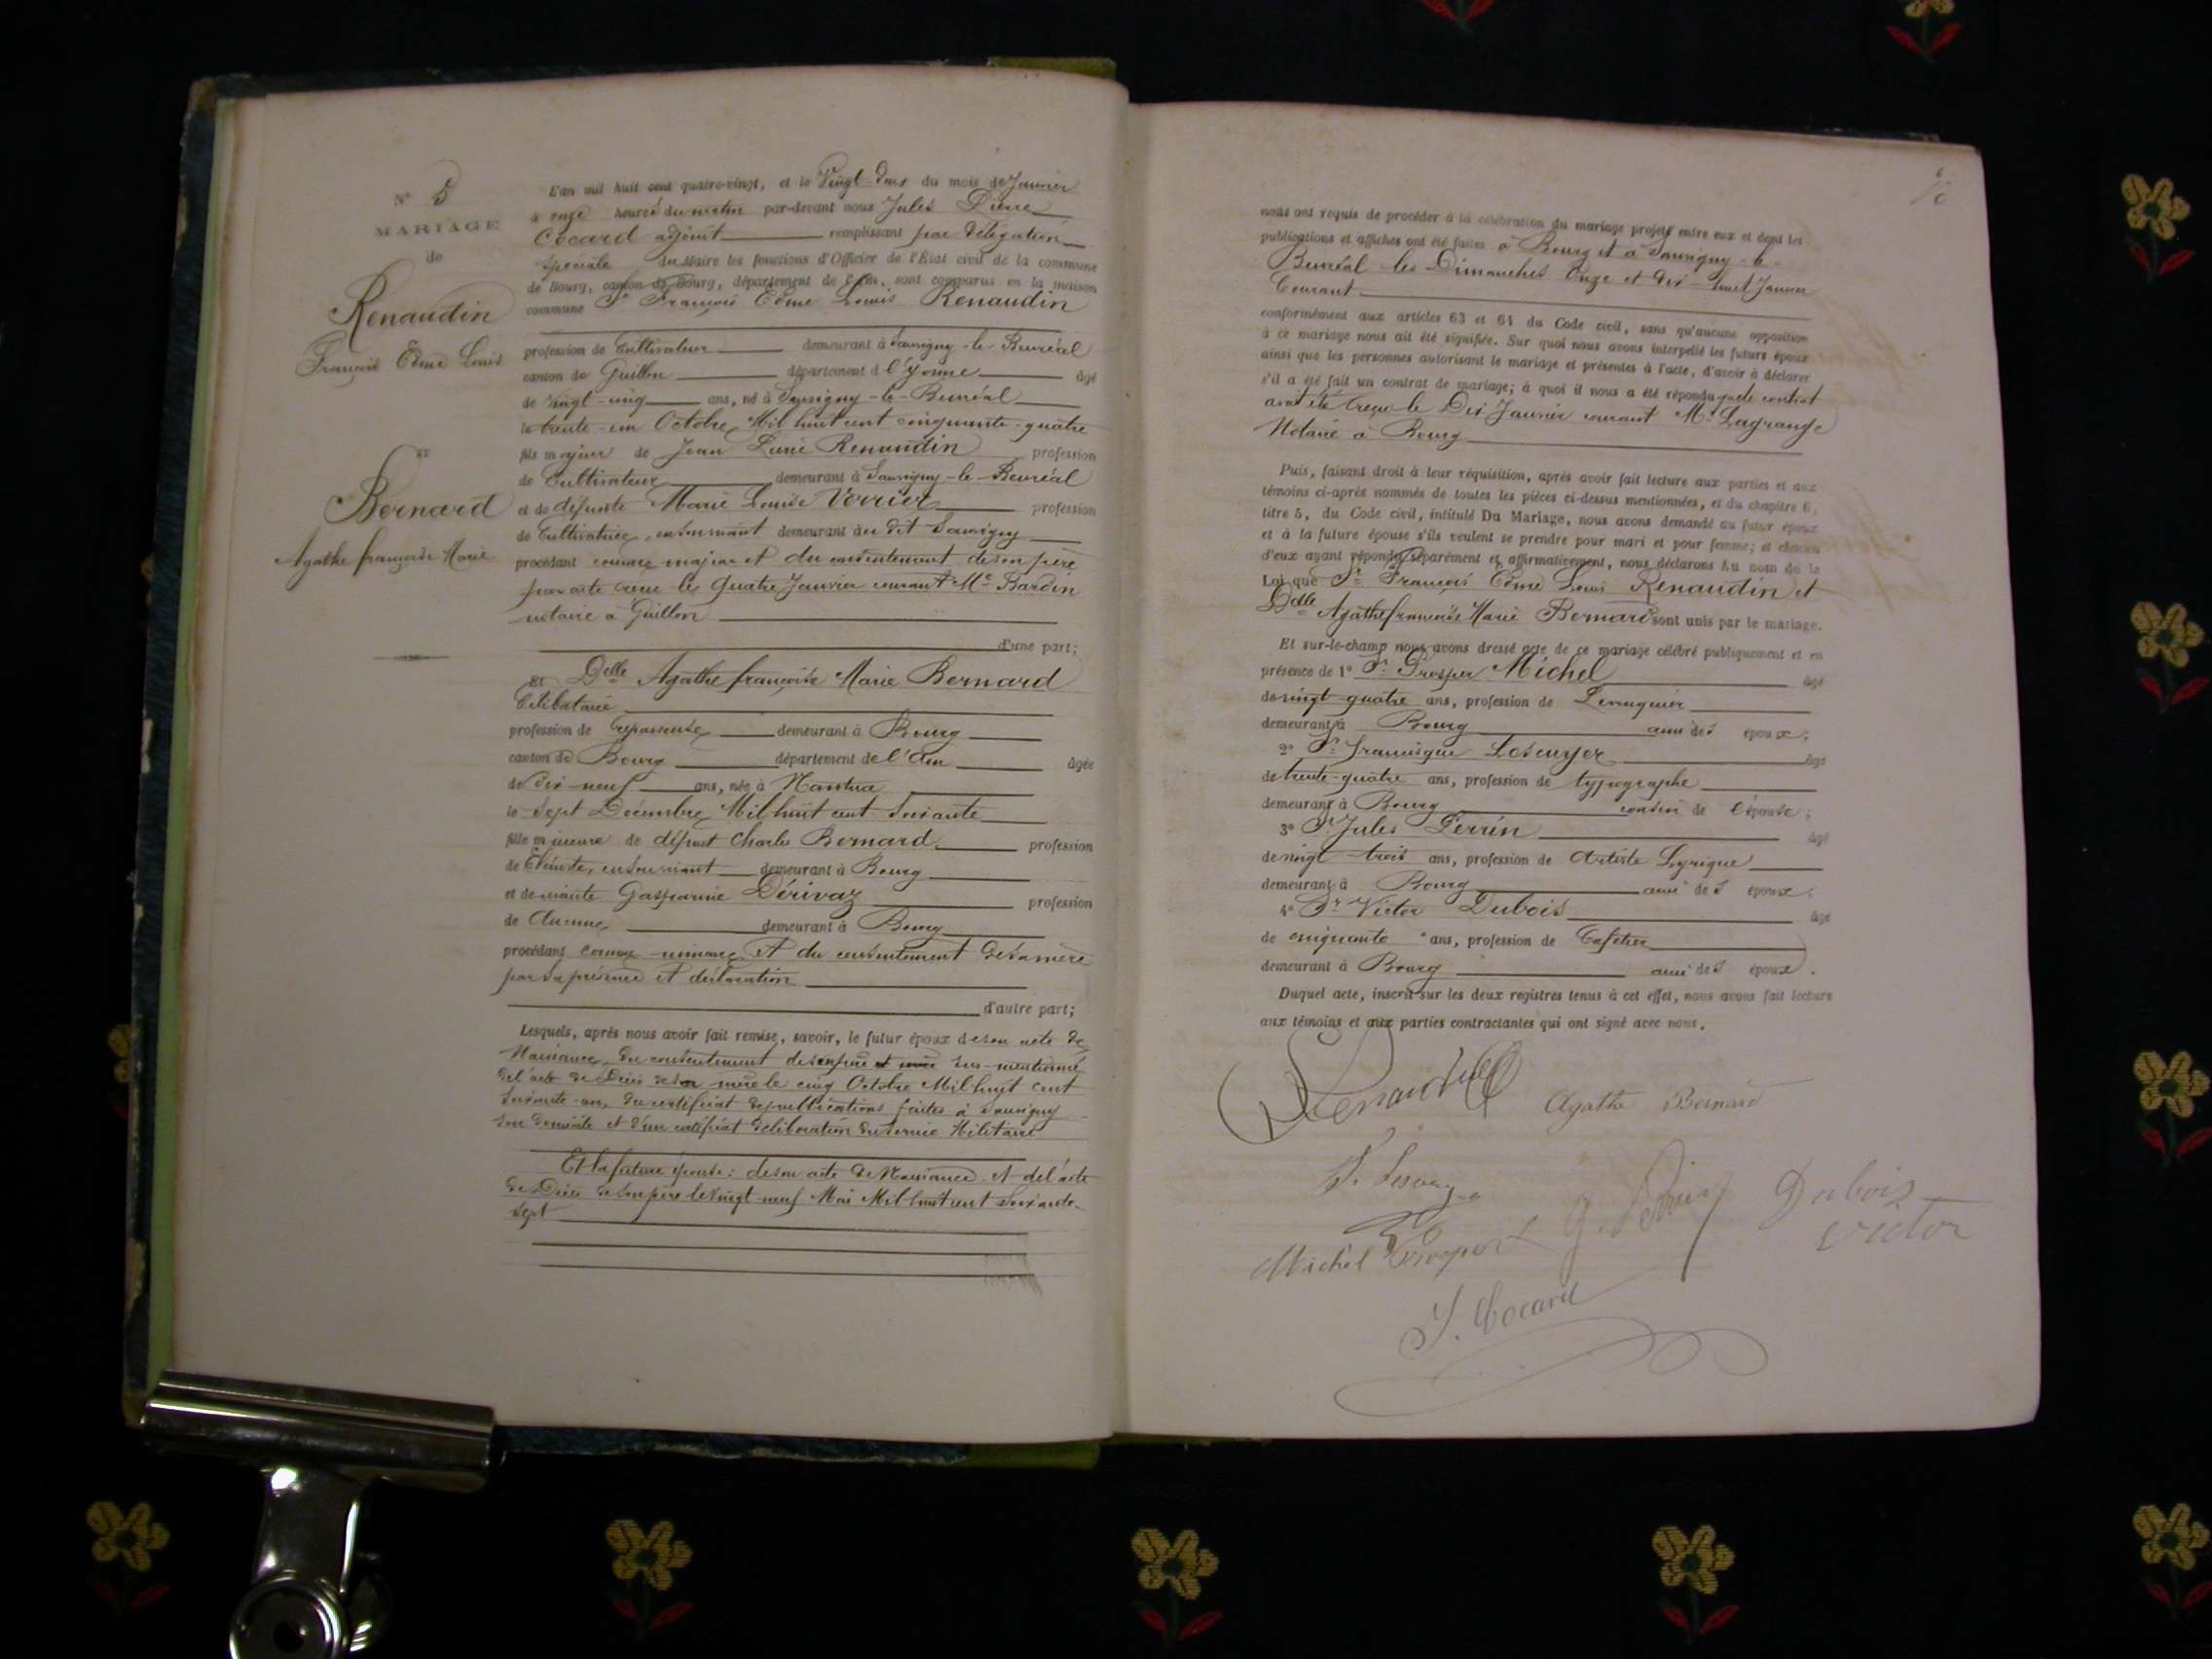 N° 5
MARIAGE
de
Renaudin
François Edme Louis
ET
Bernard
Agathe françoise Marie
L'an mil huit cent quatre-vingt, et le Vingt-deux du mois de Janvier
à onze heures du matin par-devant nous Jules Pierre
Cocard adjoint remplissant par délégation
spéciale du Maire les fonctions d'Officier de l'État civil de la commune
de Bourg, canton de Bourg, département de l'Ain, sont comparus en la maison
commune Sr François Edme Louis Renaudin
profession de Cultivateur demeurant à Sauvigny-le-Beuréal
canton de Guillon département d l'Yonne âgé
de vingt-cinq ans, né à Sauvigny-le-Beuréal
le trente-un Octobre Mil huit cent cinquante-quatre
fils majeur de Jean Louis Renaudin profession
de Cultivateur demeurant à Sauvigny-le-Beuréal
et de défunte Marie Louise Verrier profession
de Cultivatrice, en son vivant demeurant au dit Sauvigny
procédant comme majeur et du consentement de son père
par acte reçu le quatre Janvier courant Me Bardin
notaire à Guillon
d'une part;
Et Delle Agathe françoise Marie Bernard
Célibataire
profession de repasseuse demeurant à Bourg
canton de Bourg département de l'Ain âgée
de dix-neuf ans, née à Nantua
le Sept Décembre Mil huit cent soixante
fille mineure de défunt Charles Bernard profession
de Ébéniste, en son vivant demeurant à Bourg
et de vivante Gasparine Dérivaz profession
de Aucune demeurant à Bourg
procédant comme mineure et du consentement de sa mère
par sa présence et déclaration
d'autre part;
Lesquels, après nous avoir fait remise, savoir, le futur époux de son acte de
Naissance, du consentement de son père et mère sus-mentionné
de l'acte de Décès de sa mère le cinq Octobre Mil huit cent
soixante-un, du certificat de publications faites à Sauvigny
son domicile et d'un certificat de libération du service Militaire
Et la future épouse: de son acte de Naissance et de l'acte
de Décès de son père le vingt-neuf Mai Mil huit cent soixante-
sept
nous ont requis de procéder à la célébration du mariage projeté entre eux et dont les
publications et affiches ont été faites à Bourg et à Sauvigny-le-
Beuréal les Dimanches Onze et dix-huit Janvier
Courant
conformément aux articles 63 et 64 du Code civil, sans qu'aucune opposition
à ce mariage nous ait été signifiée. Sur quoi nous avons interpellé les futurs époux
ainsi que les personnes autorisant le mariage et présentes à l'acte, d'avoir à déclarer
s'il a été fait un contrat de mariage; à quoi il nous a été répondu que le contrat
avait été reçu le Dix Janvier courant Me Lagrange
Notaire à Bourg
Puis, faisant droit à leur réquisition, après avoir fait lecture aux parties et aux
témoins ci-après nommés de toutes les pièces ci-dessus mentionnées, et du chapitre 6,
titre 5, du Code civil, intitulé Du Mariage, nous avons demandé au futur époux
et à la future épouse s'ils veulent se prendre pour mari et pour femme; et chacun
d'eux ayant répondu séparément et affirmativement, nous déclarons Au nom de la
Loi que Sr François Edme Louis Renaudin et
Delle Agathe françoise Marie Bernard sont unis par le mariage.
Et sur-le-champ nous avons dressé acte de ce mariage célébré publiquement et en
présence de 1° Sr Prosper Michel âgé
de vingt-quatre ans, profession de Perruquier
demeurant à Bourg ami des époux;
2° Sr francisque Lescuyer âgé
de trente-quatre ans, profession de typographe
demeurant à Bourg cousin de l'épouse;
3° Sr Jules Perrin âgé
de vingt-trois ans, profession de Artiste Lyrique
demeurant à Bourg ami des époux;
4° Sr Victor Dubois âgé
de cinquante ans, profession de Cafetier
demeurant à Bourg ami des époux.
Duquel acte, inscrit sur les deux registres tenus à cet effet, nous avons fait lecture
aux témoins et aux parties contractantes qui ont signé avec nous.
Renaudin
Agathe Bernard
Dubois
Victor
Michel Prosper
J. Cocard